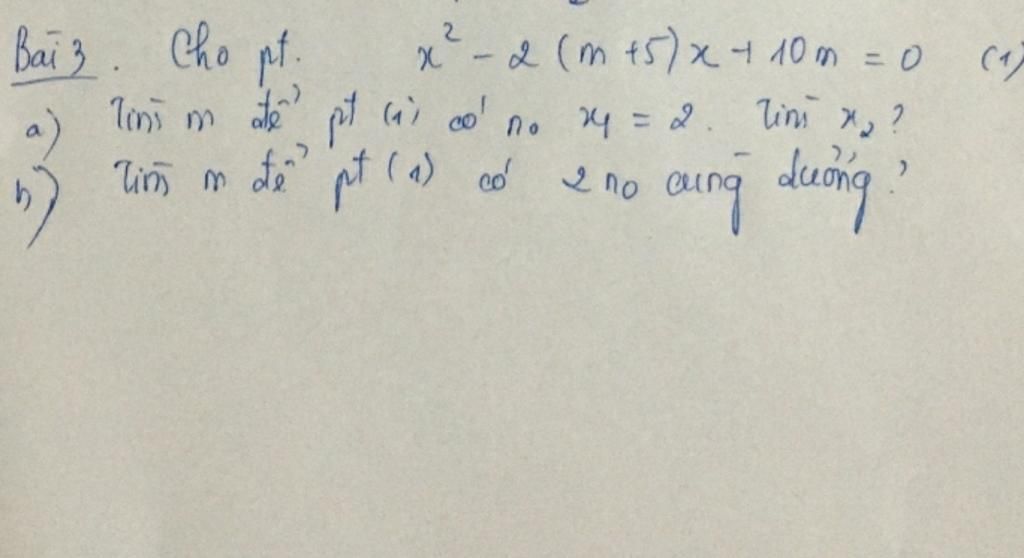 Bài 3. Cho pt. x² - 2(m+5)x + 10m = 0 (1)
a) Tìm m để pt (1) có no x₁ = 2. Tìm x₂?
b) Tìm m để pt (1) có 2 no cùng dương?